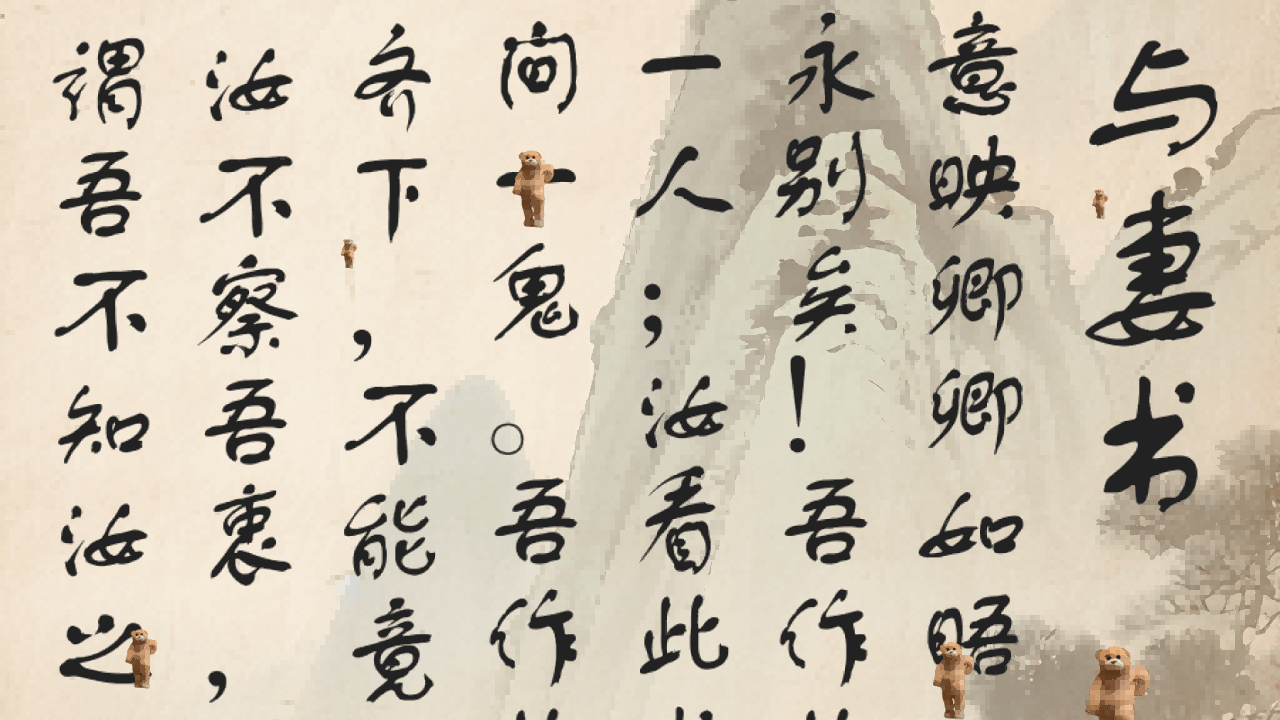 与妻书
意映卿卿如晤
永别矣！吾作
一人；汝看此
间一鬼。吾作
齐下，不能竟
汝不察吾衷，
谓吾不知汝之